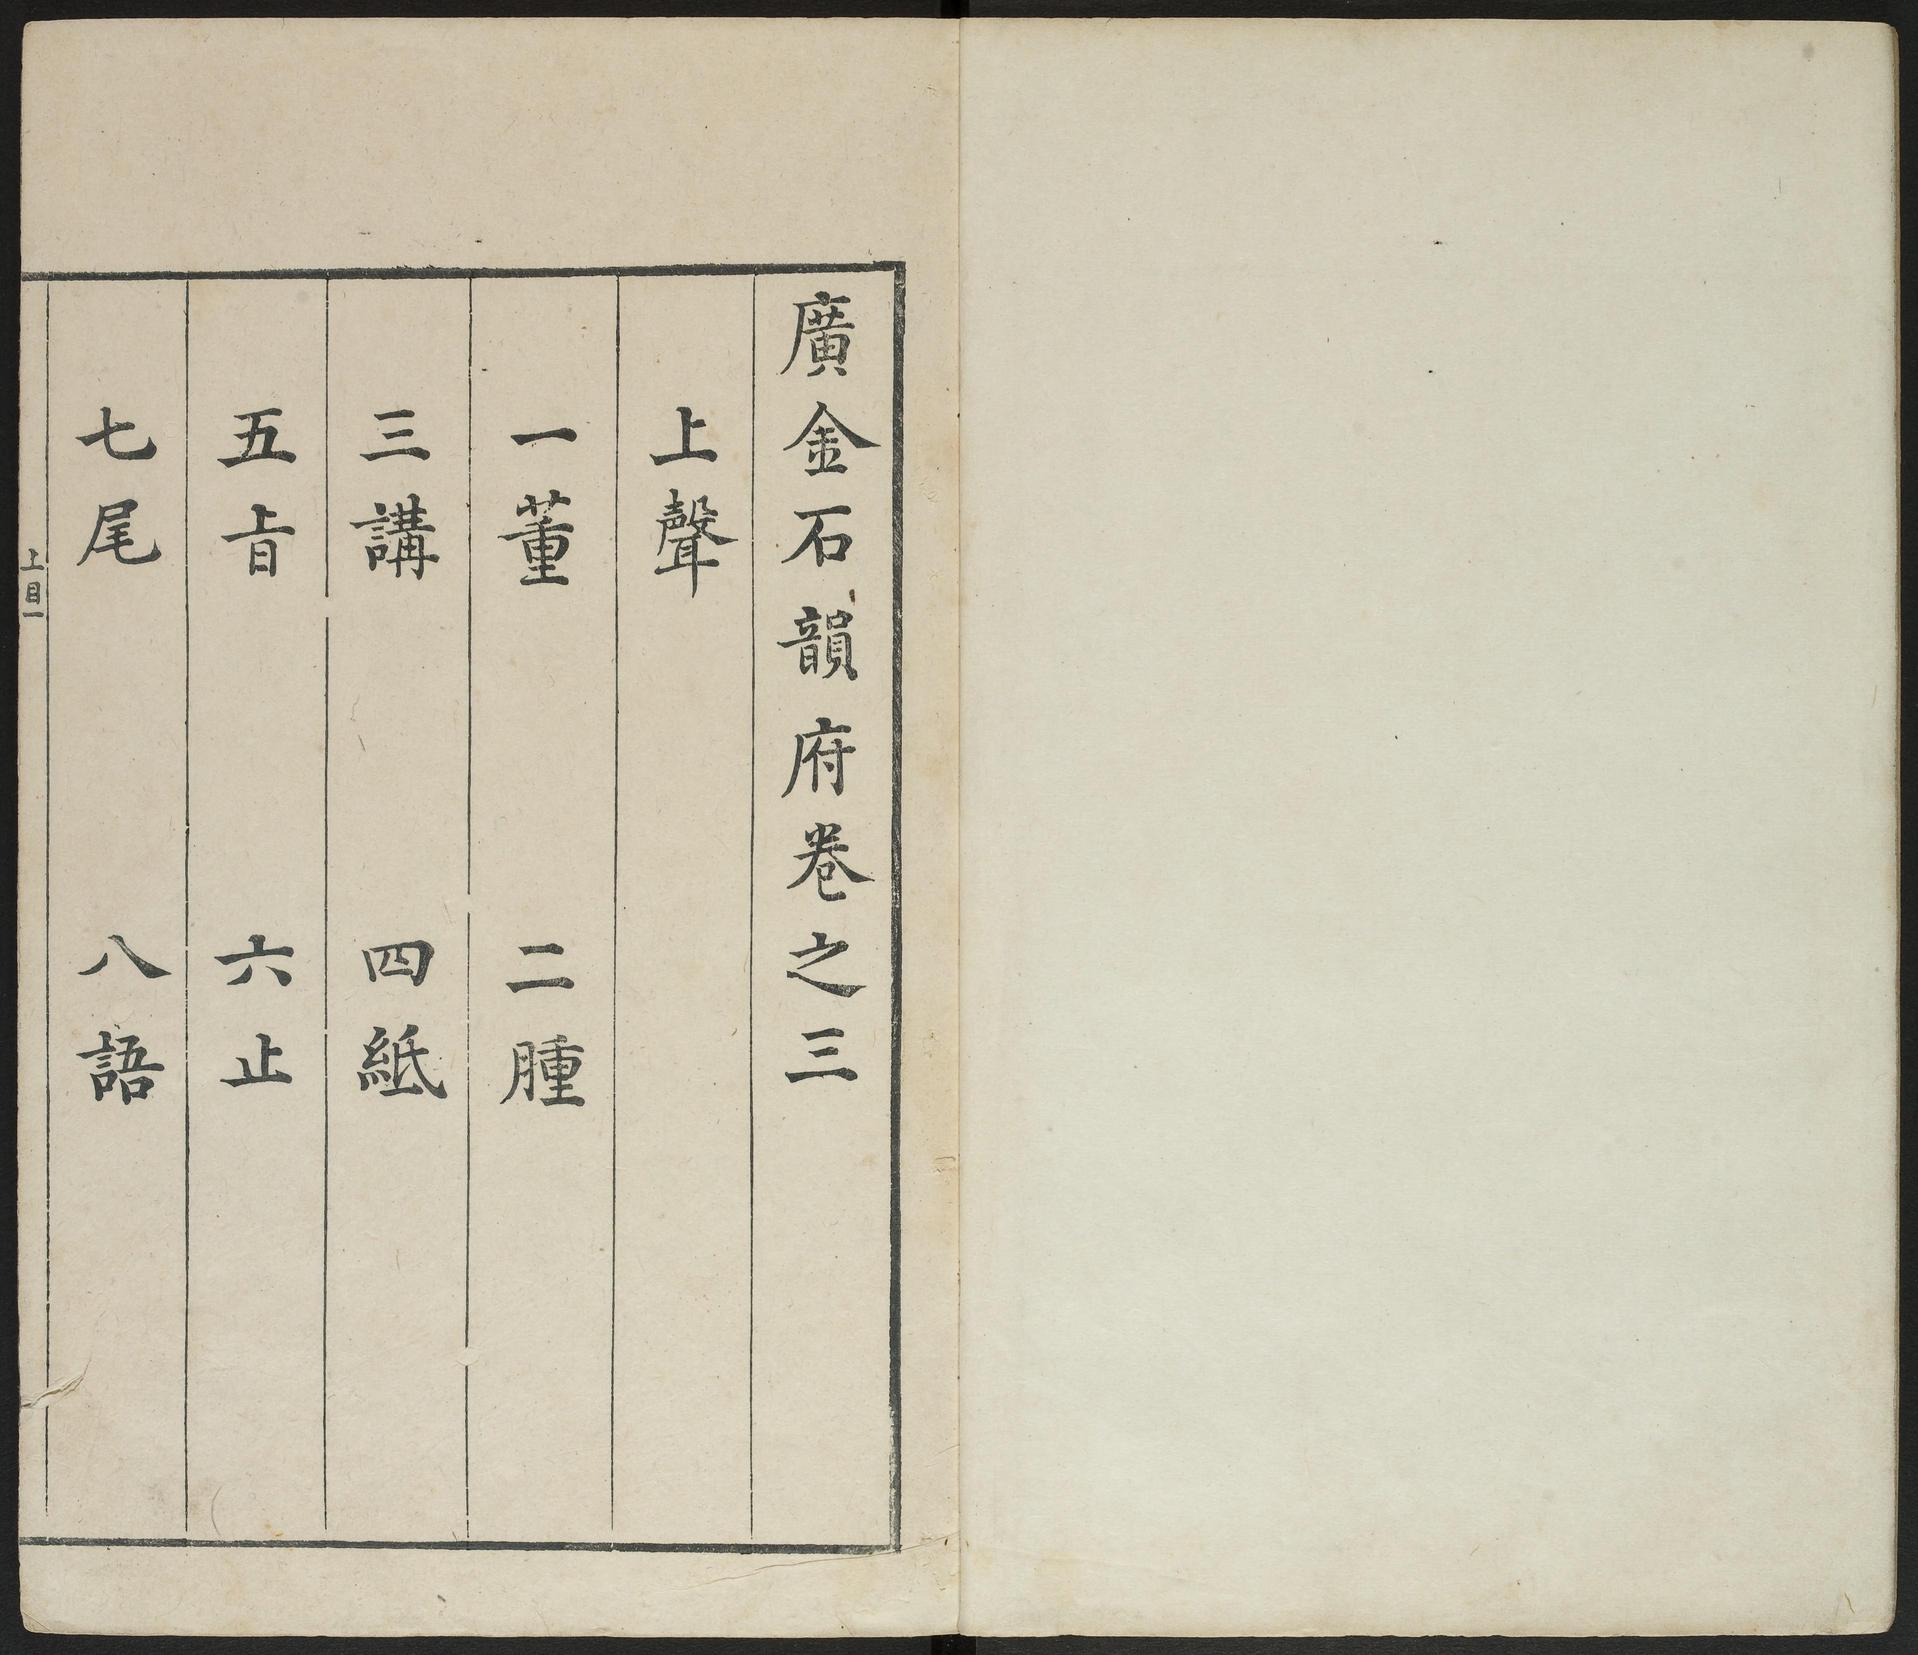 廣金石韻府卷之三
上聲
一董 二腫
三講 四紙
五㫖 六止
七尾 八語
上目一